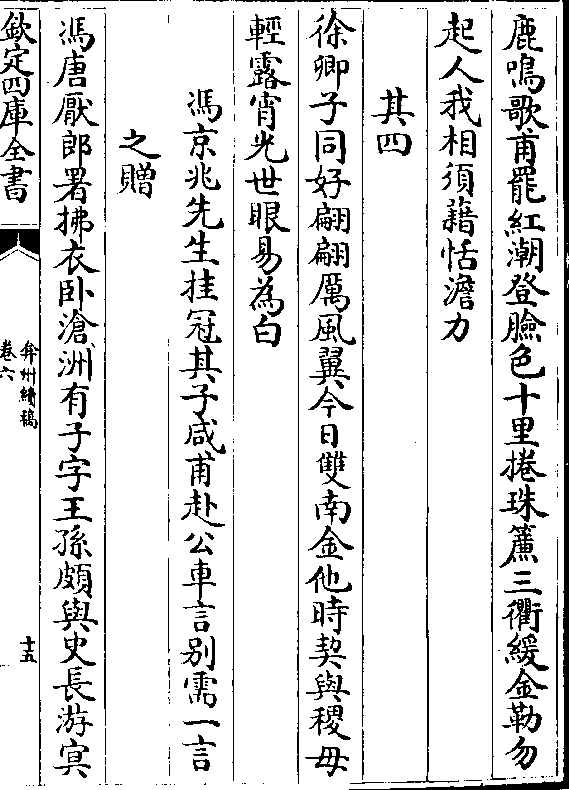 鹿鳴歌甫罷紅潮登臉色十里捲珠簾三衢緩金勒勿
起人我相須藉恬澹力
其四
徐卿子同好翩翩厲風翼今日雙南金他時契與稷毋
輕露宵光世眼易為白
馮京兆先生挂冠其子咸甫赴公車言别需一言
之贈
馮唐厭郎署拂衣卧滄洲有子字王孫頗與史長游㝠
欽定四庫全書
弇州續稿
卷六
十五